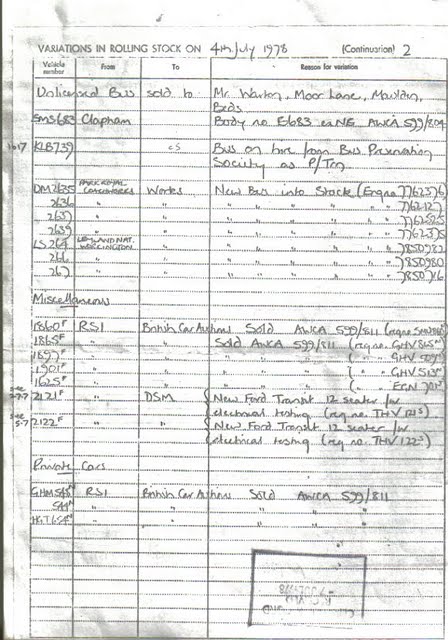 VARIATIONS IN ROLLING STOCK ON 4th July 1978 (Continuation) 2
Vehicle number From To Reason for variation
Unlicensed Bus sold to Mr. Warton, Moor Lane, Maulden,
Beds
SMS683 Clapham Body no. E683 AWCA 599/804
KLB739 cs Bus on hire from Bus Preservation
Society as P/Trn
DM2635 PARK ROYAL COACHWORKS Works New Bus into Stock (Eng no 7762376)
2636 " " " " " " " "
2637 " " " " " " " "
2639 " " " " " " " "
LS264 LEYLAND NAT. WORKINGTON " " " " " " "
266 " " " " " " " " 7850980
267 " " " " " " " "
Miscellaneous
1860F RS1 British Car Auctions Sold AWCA 599/811
1865F " " Sold AWCA 599/811 (reg no. GHV
1897F " " " " " ( " " GHV
1901F " " " " " ( " " GHV
1625F " " " " " ( " " EGN
2121F " DSM New Ford Transit 12 seater for
electrical testing (reg no. THV 121S)
2122F " New Ford Transit 12 seater for
electrical testing (reg no. THV 122S)
Private Cars
RS1 British Car Auctions Sold AWCA 599/811
" " " "
" " " "